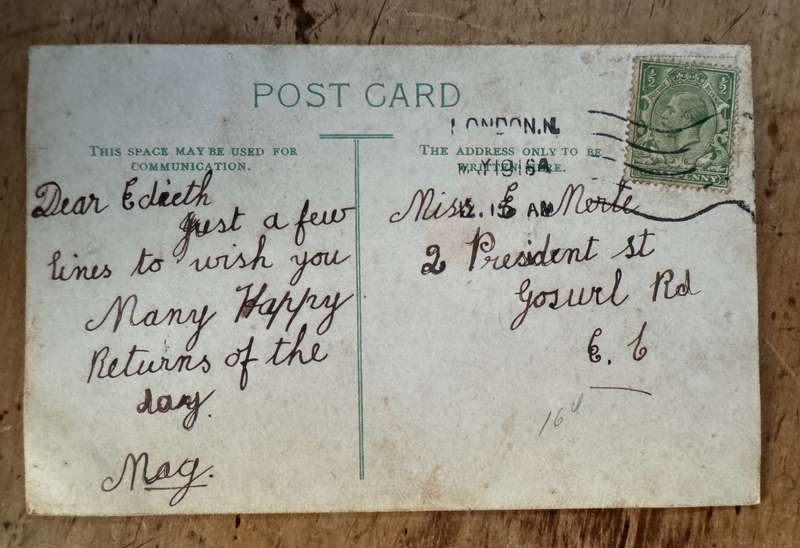 POST CARD
THIS SPACE MAY BE USED FOR
COMMUNICATION.
Dear Edieth
Just a few
lines to wish you
Many Happy
Returns of the
day.
Mag.
LONDON.N.
12.15 AM
THE ADDRESS ONLY TO BE
WRITTEN HERE.
Miss E Merte
2 President st
Goswrl Rd
E. C
16d
½ ½
PENNY